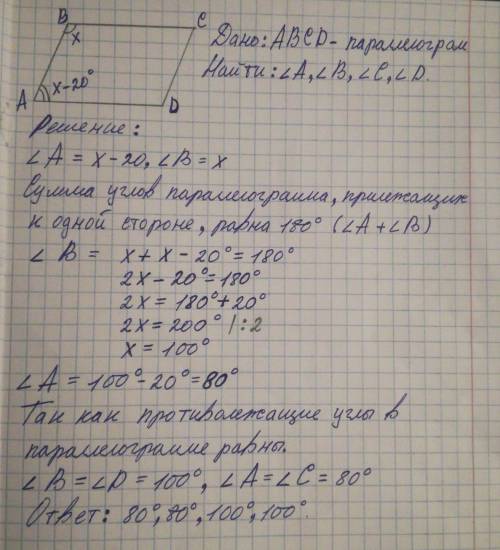 B
C
x
Дано: ABCD - параллелограм
Найти: ∠A, ∠B, ∠C, ∠D.
x-20°
A
D
Решение:
∠A = x - 20, ∠B = x
Сумма углов параллелограмма, прилежащих
к одной стороне, равна 180° (∠A + ∠B)
∠B = x + x - 20° = 180°
2x - 20° = 180°
2x = 180° + 20°
2x = 200° |:2
x = 100°
∠A = 100° - 20° = 80°
Так как противолежащие углы в
параллелограмме равны.
∠B = ∠D = 100°, ∠A = ∠C = 80°
Ответ: 80°, 80°, 100°, 100°.